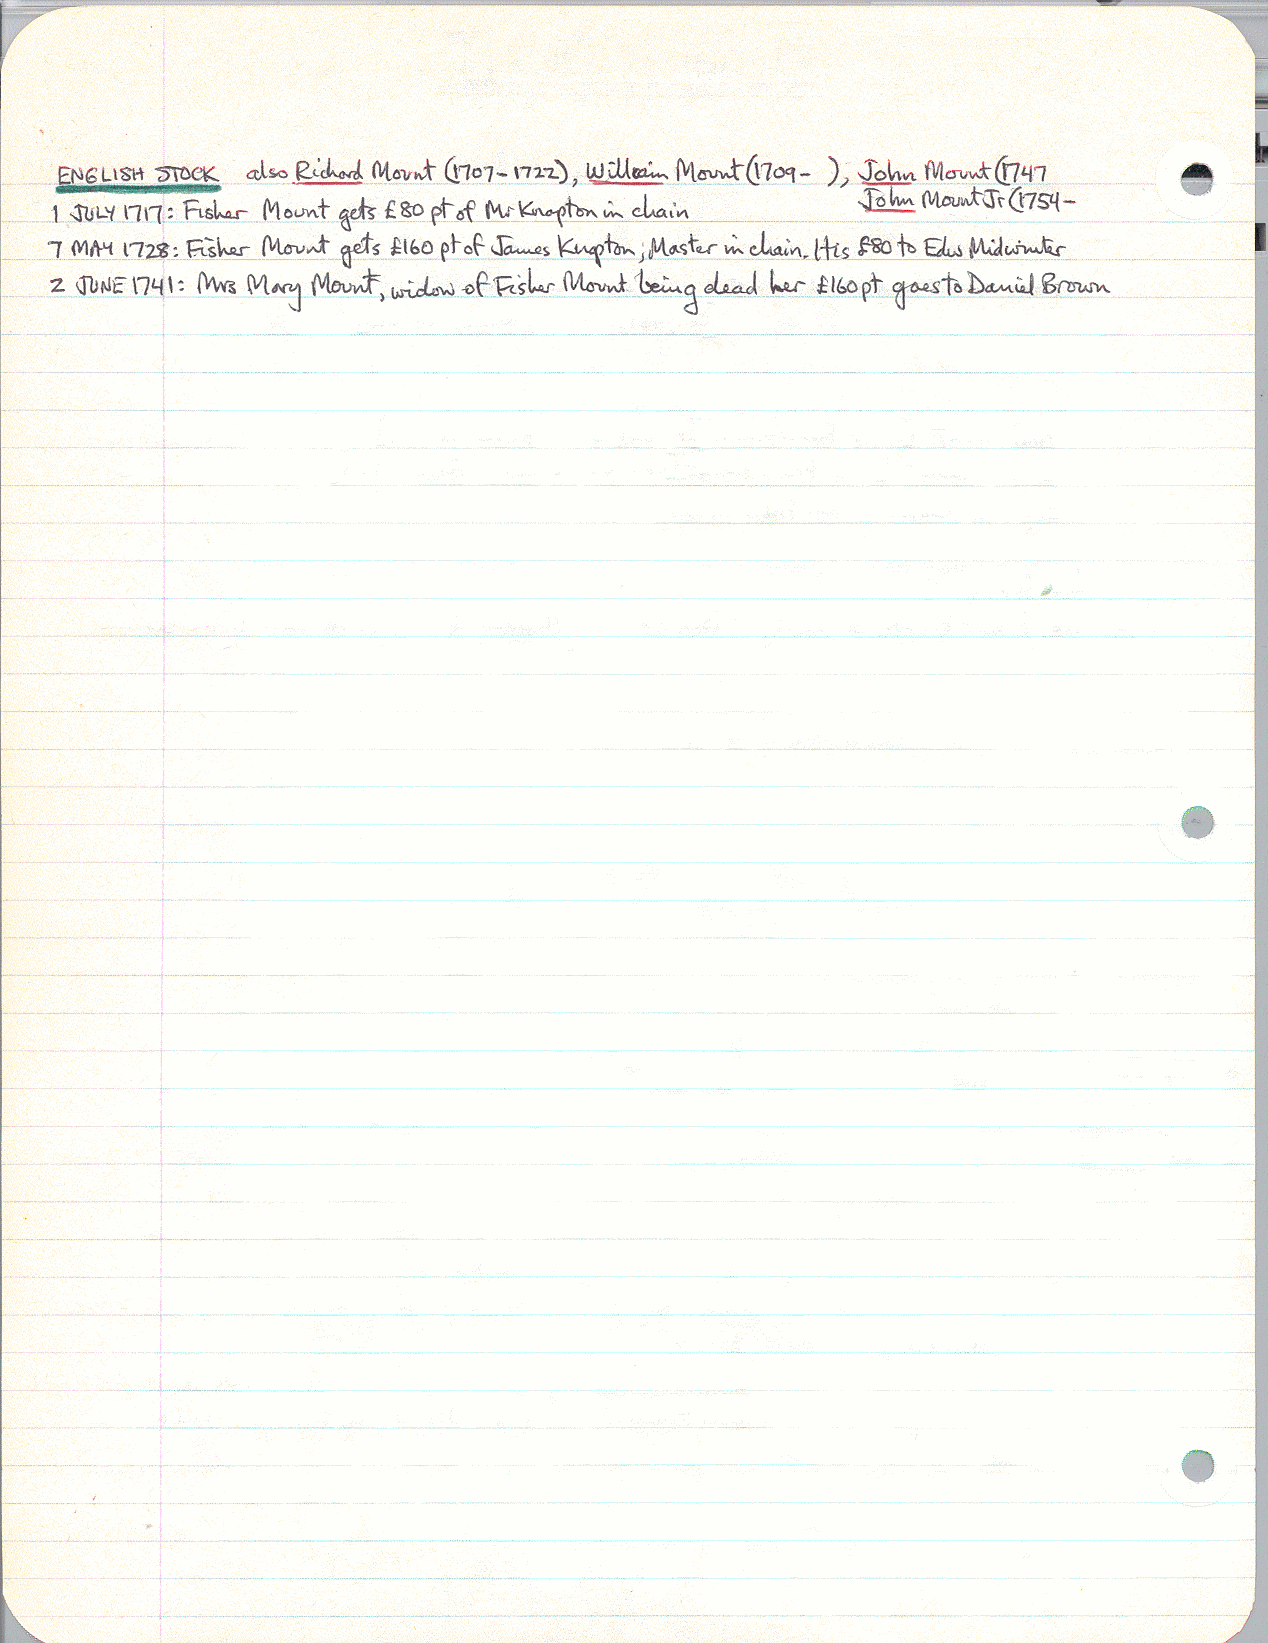 ENGLISH STOCK also Richard Mount (1707-1722), William Mount (1709- ), John Mount (1747
John Mount Jr (1754-
1 JULY 1717: Fisher Mount gets £80 pt of Mr Knapton in chain
7 MAY 1728: Fisher Mount gets £160 pt of James Knapton, Master in chain. His £80 to Edw Midwinter
2 JUNE 1741: Mrs Mary Mount, widow of Fisher Mount being dead her £160 pt goes to Daniel Brown